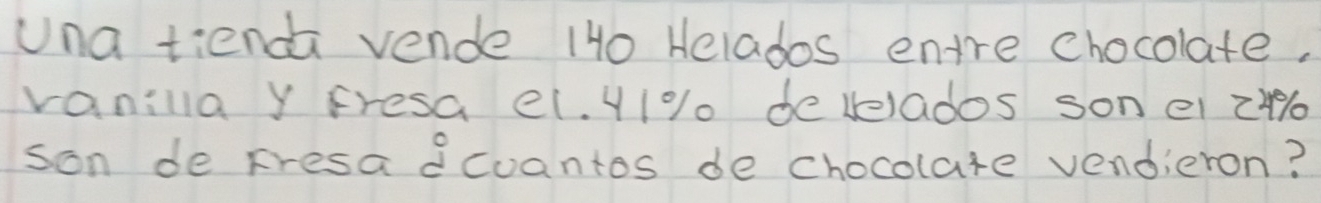 Una tienda vende 140 Helados entre chocolate,
vanilla y fresa el. 41% de helados son el 24%
son de fresa ¿cuantos de chocolate vendieron?